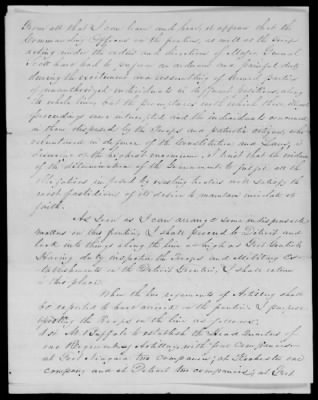 From all that I can learn and hear, it appears that the
Commanding Officers on the frontier, as well as the troops
acting under the orders and directions of Major General
Scott have had to perform an arduous and painful duty
during the excitement and assembling of armed parties
of unauthorized individuals in different positions, along
the whole line, but the promptness with which these
proceedings were intercepted and the individuals concerned
in them dispersed by the troops and patriotic citizens who
volunteered in defence of the Constitution and Laws, is
deserving of the highest encomiums, & I trust that the evidence
of the determination of the Government to fulfil all the
obligations imposed by existing treaties will satisfy the
most fastidious of its desire to maintain inviolate its
faith.
As soon as I can arrange some indispensable
matters on this frontier, I shall proceed to Detroit and
look into things along the line as high as Fort Gratiot
Having duly inspected the troops and Military es-
tablishments on the Detroit frontier, I shall return
to this place.
When the two regiments of Artillery shall
be reported to have arrived on the frontier I purpose
posting the troops on the line as follows
1st At Buffalo to establish the Head Quarters of
one Regiment of Artillery with four companies
at Fort Niagara two companies; at Rochester one
company and at Detroit two companies; at Fort